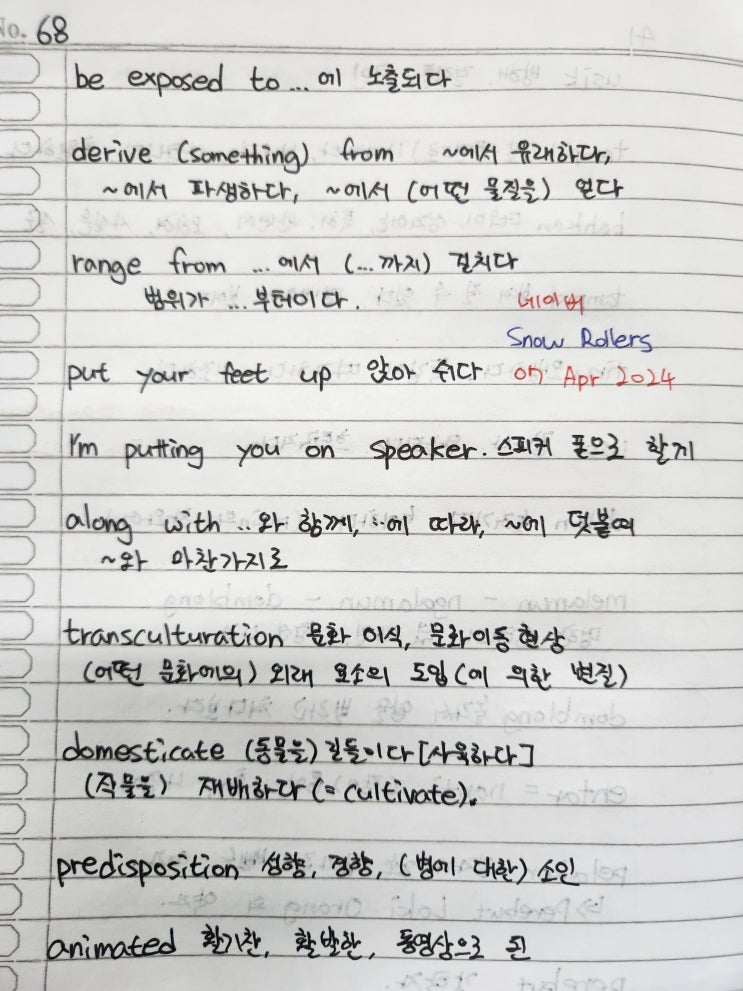 No. 68
be exposed to ... 에 노출되다
derive (something) from ~에서 유래하다,
~에서 파생하다, ~에서 (어떤 물질을) 얻다
range from ... 에서 (... 까지) 걸치다
범위가 ... 부터이다.
네이버
Snow Rollers
put your feet up 앉아 쉬다
07 Apr 2024
I'm putting you on speaker. 스피커 폰으로 할게
along with ... 와 함께, ...에 따라, ~에 덧붙여
~와 마찬가지로
transculturation 문화 이식, 문화이동 현상
(어떤 문화에의) 외래 요소의 도입 (에 의한 변질)
domesticate (동물을) 길들이다 [사육하다]
(작물을) 재배하다 (= cultivate).
predisposition 성향, 경향, (병에 대한) 소인
animated 활기찬, 활발한, 동영상으로 된